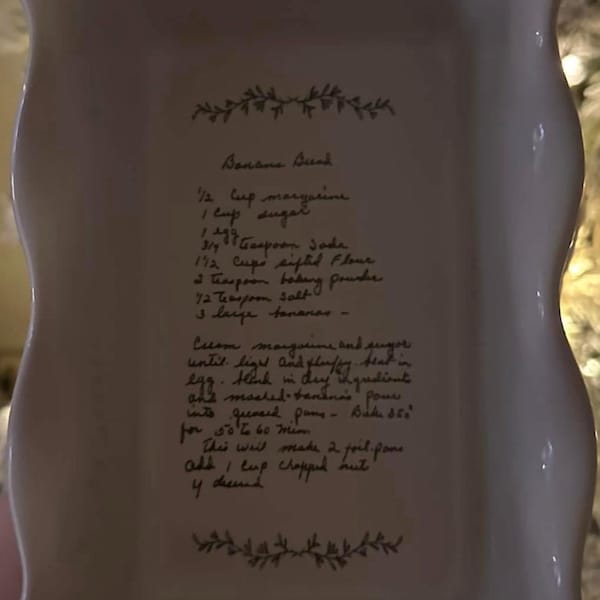 Banana Bread
1/2 Cup margarine
1 Cup sugar
1 egg
3/4 teaspoon Soda
1 1/2 Cups sifted Flour
2 teaspoon baking powder
1/2 Teaspoon Salt
3 large bananas -
Cream margarine and sugar
until light and fluffy. beat in
egg. blend in dry ingredients
and mashed bananas pour
into greased pans - Bake 350°
for 50 to 60 Min
This will make 2 foil pans
Add 1 Cup chopped nut
if desired